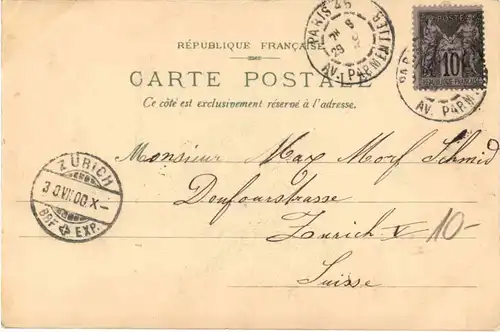 PARIS 46
29
AV. PARMENTIER
POSTES
10
RÉPUBLIQUE FRANÇAISE
AV. PARM
RÉPUBLIQUE FRANÇAISE
CARTE POSTALE
Ce côté est exclusivement réservé à l'adresse.
ZÜRICH
30.VII.00.X-
BRF EXP.
Monsieur Max Morf Schmid
Doufourstrasse
Zurich V 10-
Suisse